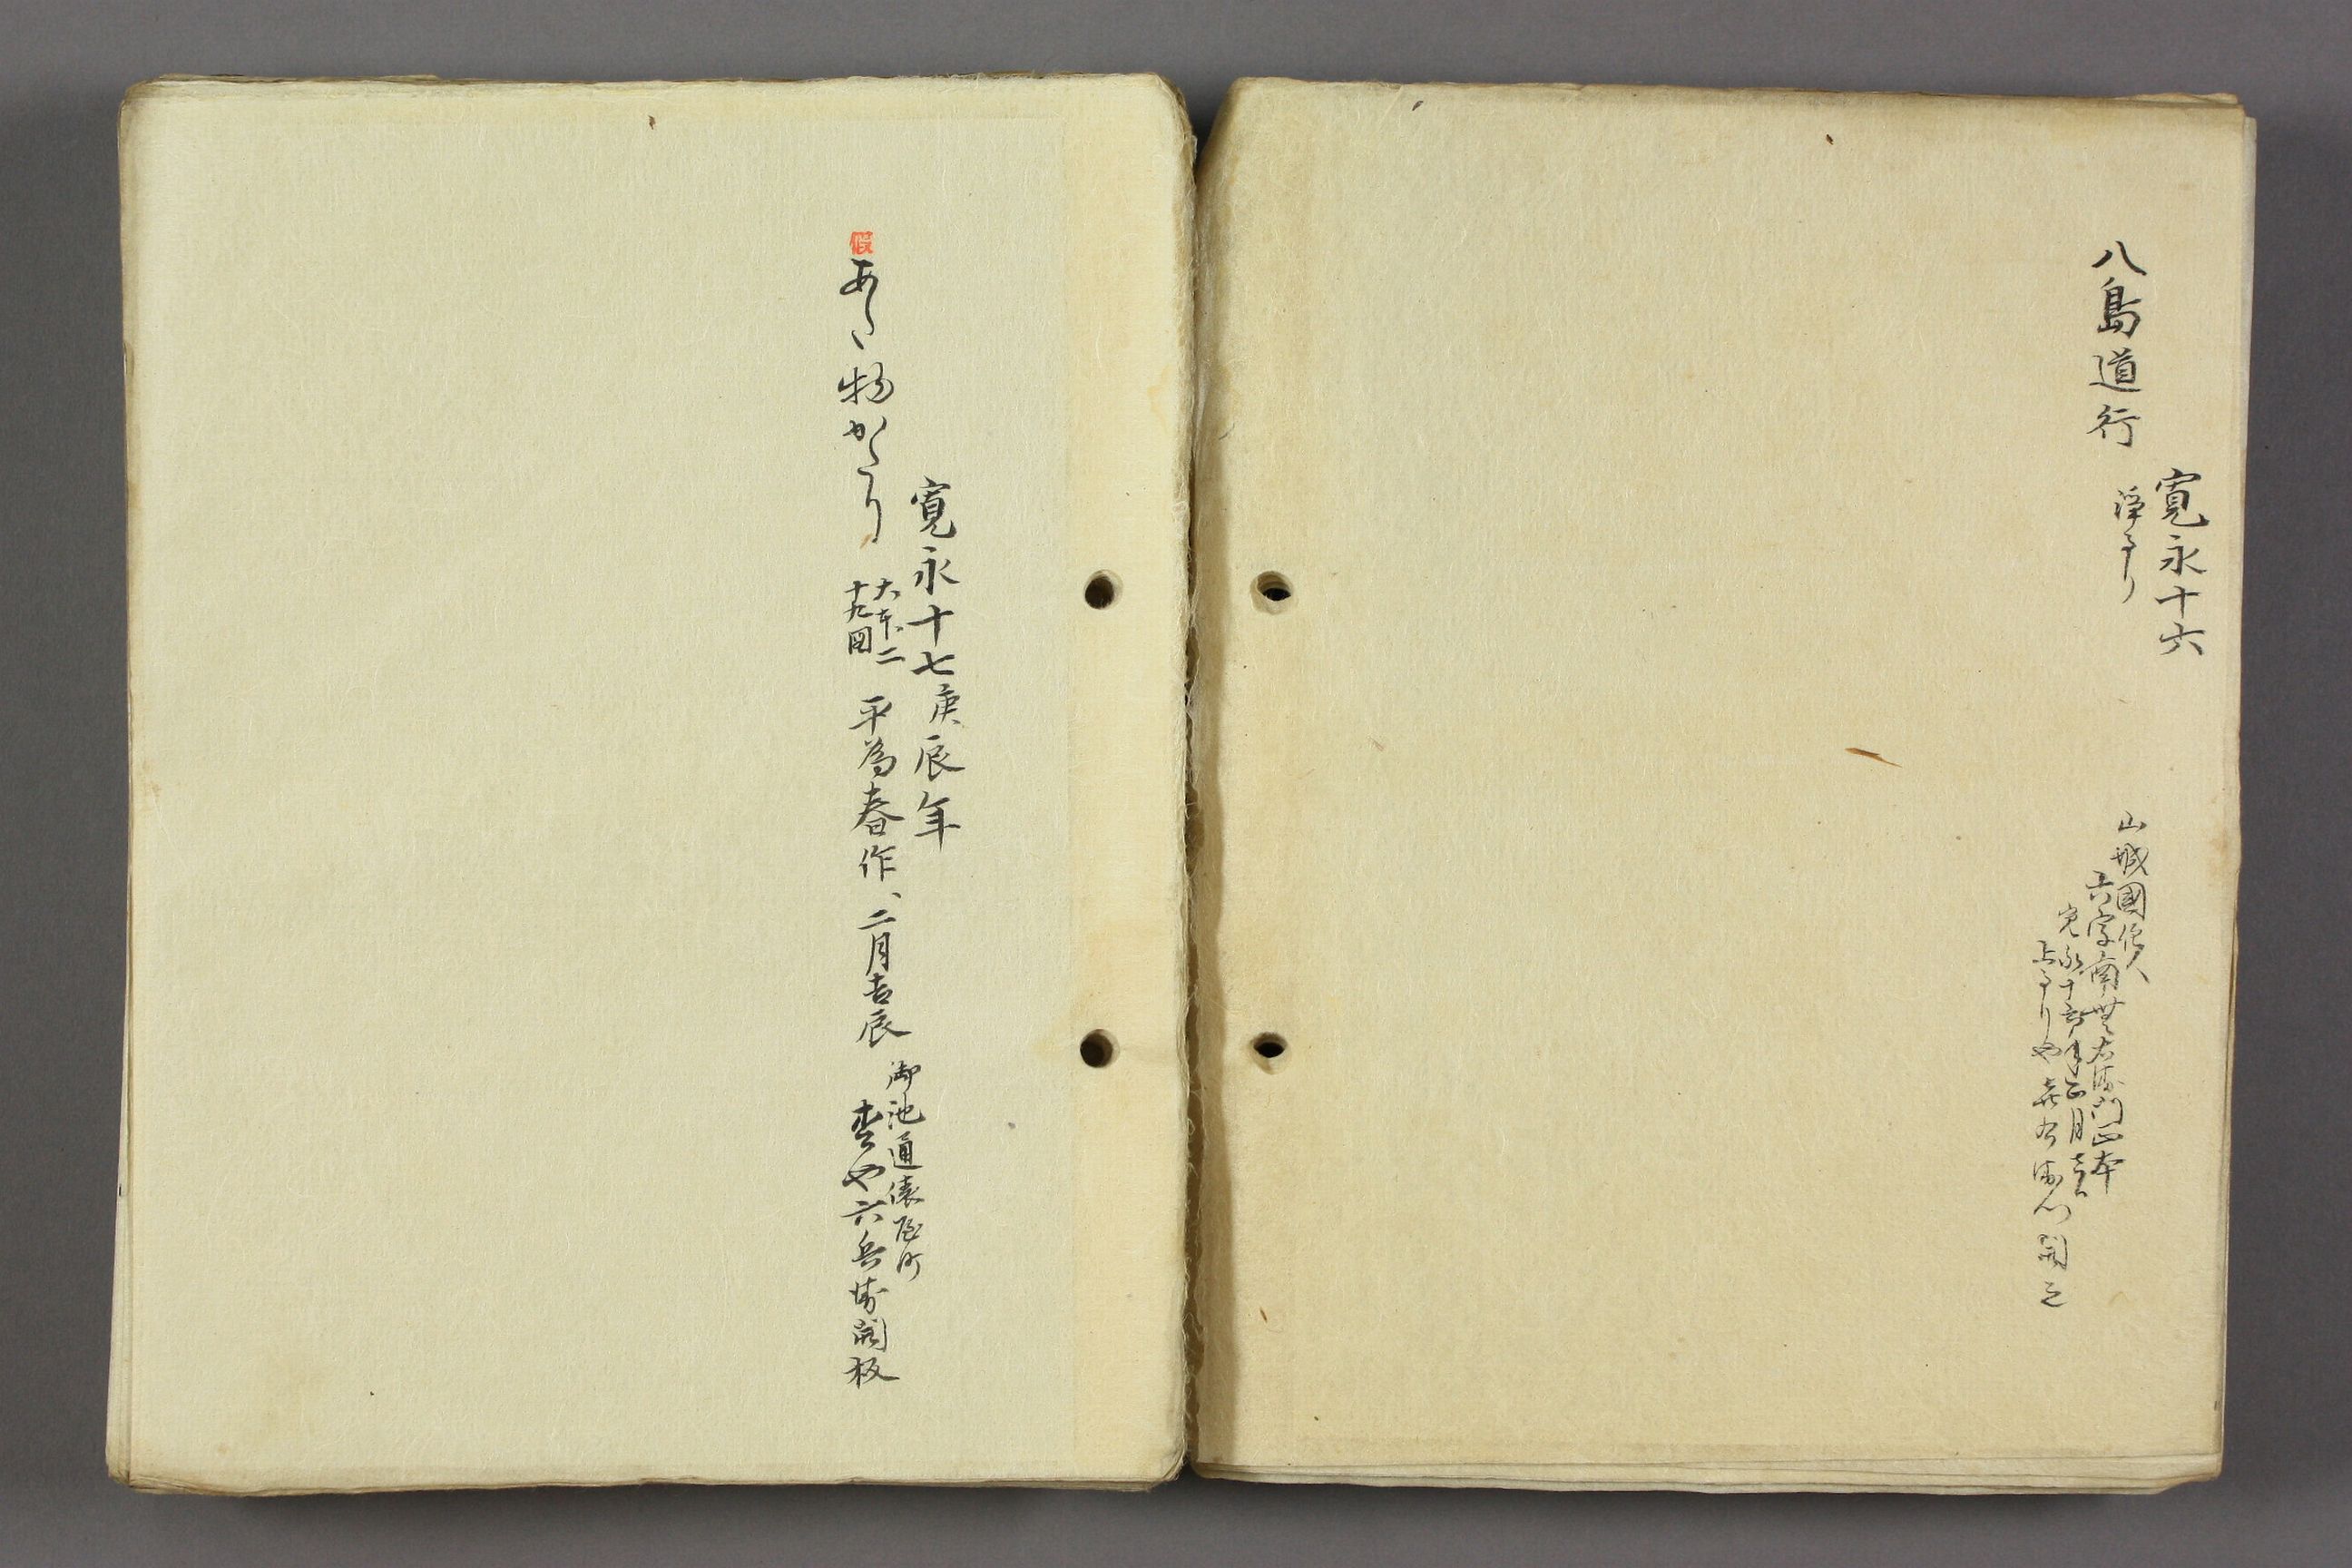 寛永十六
八島道行
浄るり
山城國住人
六字南無右衛門正本
寛永十六年正月吉日
上るりや喜右衛門開之
寛永十七庚辰年
あた物かたり
大本二
十九図
平為春作、二月吉辰
御池通俵屋町
杢や六兵衛開板